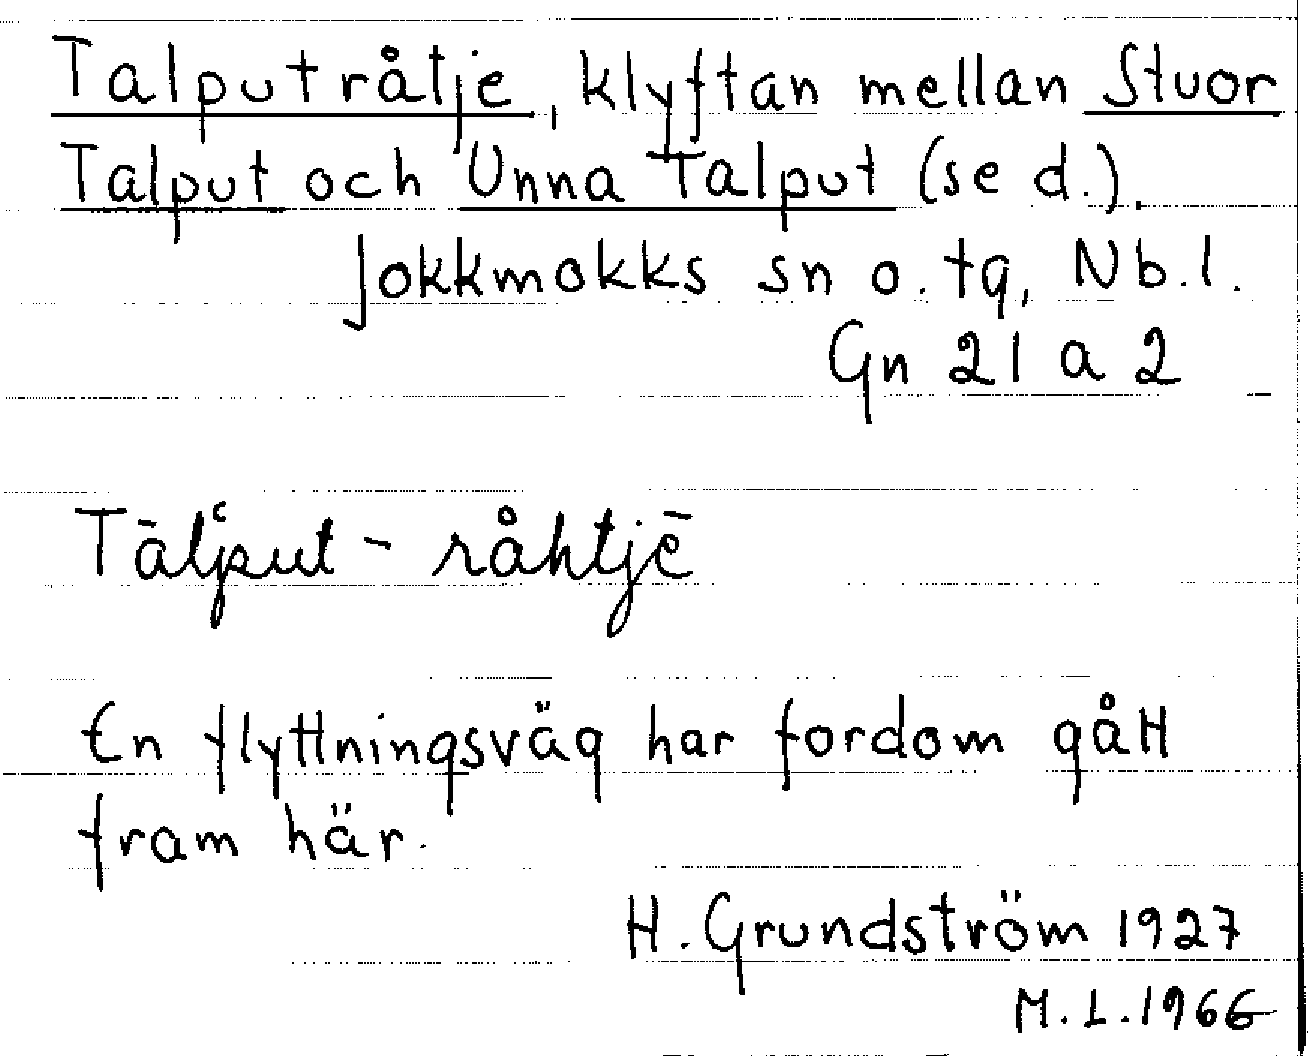 Talputråtje, klyftan mellan Stuor
Talput och Unna Talput (se d.).
Jokkmokks sn o. tg, Nb.l.
Gn 21 a 2
Tālʿput - råhtjē
En flyttningsväg har fordom gått
fram här.
H. Grundström 1927
M.L. 1966